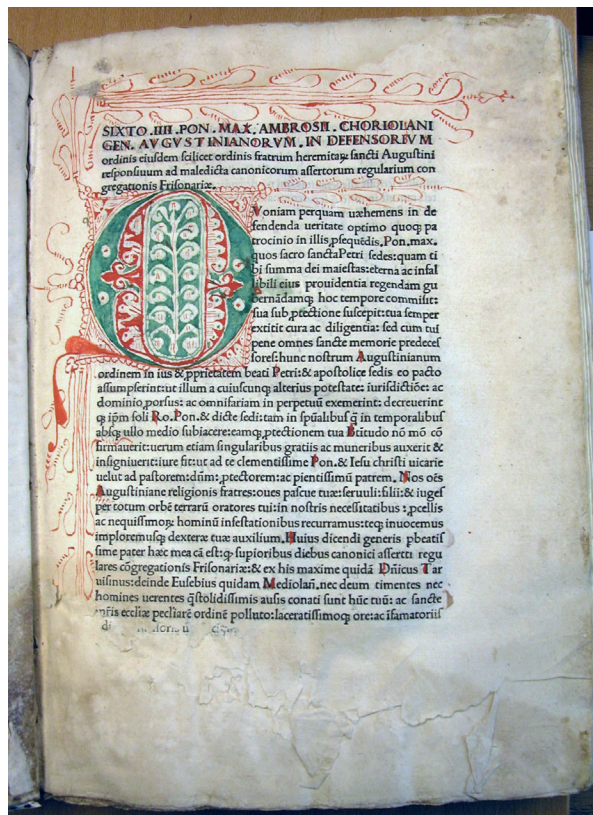 SIXTO .IIII .PON .MAX. AMBROSII. CHORIOLANI
GEN. AVGVSTINIANORVM. IN DEFENSORIVM
ordinis eiusdem scilicet ordinis fratrum heremitaꝝ sancti Augustini
responsiuum ad maledicta canonicorum assertorum regularium con
gregationis Frisonariæ.
Voniam perquam uæhemens in de
fendenda ueritate optimo quoqꝫ pa
trocinio in illis ꝓsequēdis. Pon. max.
quos sacro sancta Petri sedes: quam ti
bi summa dei maiestas: eterna ac infal
libili eius prouidentia regendam gu
bernādamqꝫ hoc tempore commisit:
sua sub ꝓtectione suscepit: tua semper
extitit cura ac diligentia: sed cum tuſ
pene omnes sancte memorie predeceſ
sores: hunc nostrum Augustinianum
ordinem in ius & ꝓprietatem beati Petri: & apostolice sedis eo pacto
assumpserint: ut illum a cuiuscunqꝫ alterius potestate: iurisdictiōe: ac
dominio ꝓrsus: ac omnifariam in perpetuū exemerint: decreuerint
qꝫ ip̄m soli Ro. Pon. & dicte sedi: tam in spūalibus q̄ in temporalibus
absqꝫ ullo medio subiacere: eamqꝫ ꝓtectionem tua Btitudo nō mō cō
firmauerit: uerum etiam singularibus gratiis ac muneribus auxerit &
insigniuerit: iure fit: ut ad te clementissime Pon. & Iesu christi uicarie
uelut ad pastorem: dn̄m: ꝓtectorem: ac pientissimū patrem. Nos oēs
Augustiniane religionis fratres: oues pascue tuæ: seruuli: filii: & iugeſ
per totum orbē terrarū oratores tui: in nostris necessitatibus: ꝓcellis
ac nequissimoꝝ hominū infestationibus recurramus: teqꝫ inuocemus
imploremusqꝫ dexteræ tuæ auxilium. Huius dicendi generis ꝑbeatiſ
sime pater hæc mea cā est: qꝫ supioribus diebus canonici assertti regu
lares cōgregationis Frisonariæ: & ex his maxime quidā Dn̄icus Tar
uisinus: deinde Eusebius quidam Mediolan̄. nec deum timentes nec
homines uerentes q̄stolidissimis ausis conati sunt hūc tuū: ac sancte
eccliæ peclīarē ordinē polluto: laceratissimoqꝫ ore: ac īfamatoriis